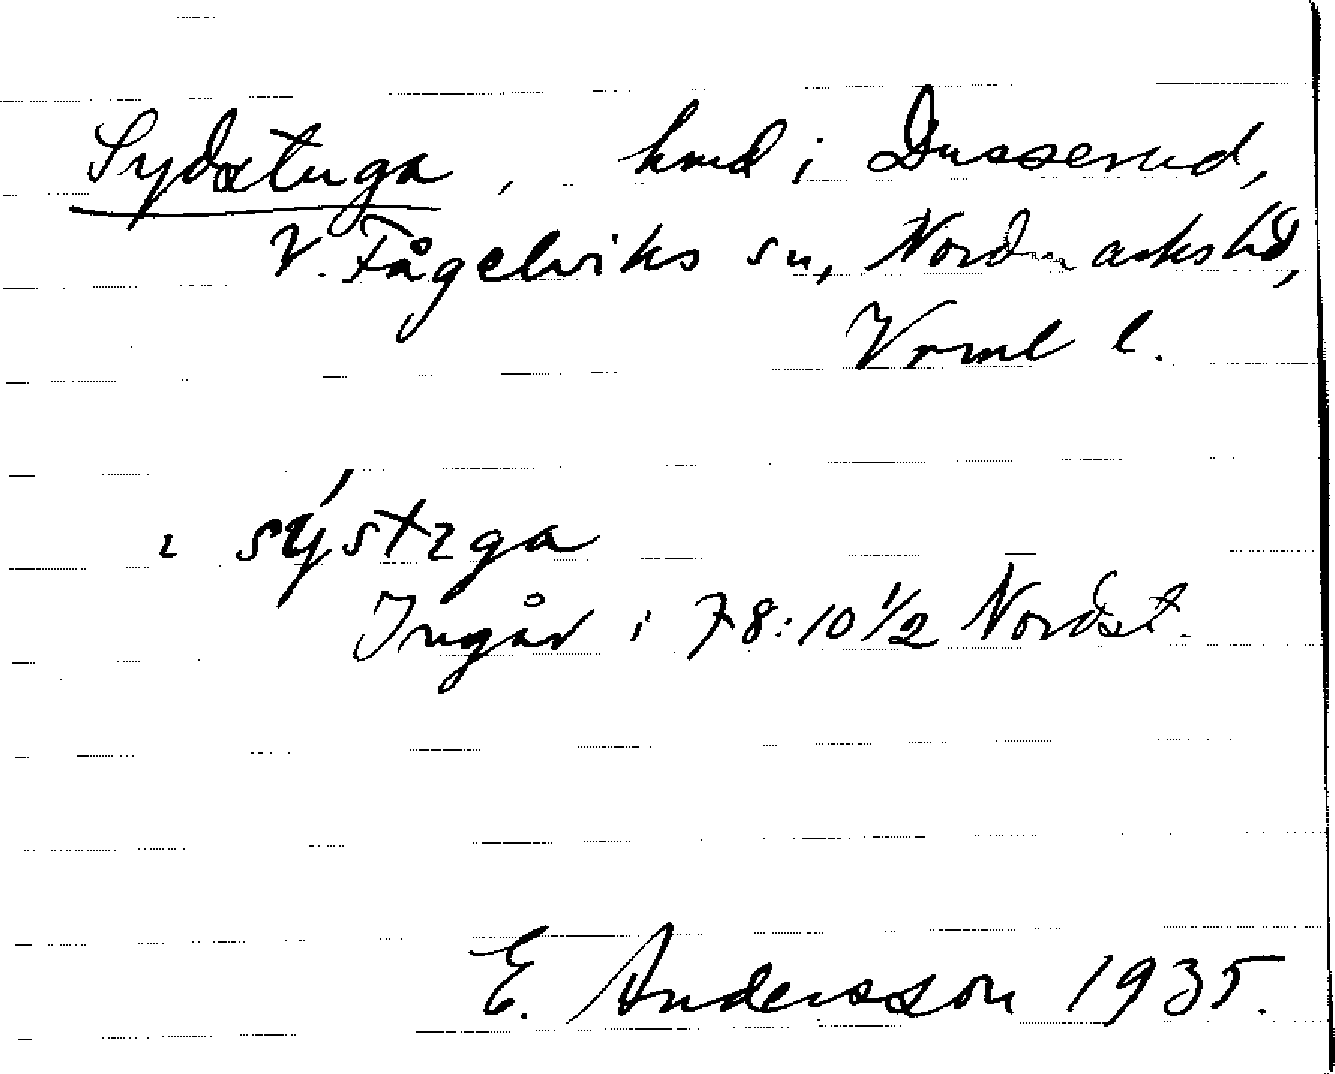 Sydstuga, hmd i Dusserud,
V. Fågelviks sn, Nordmarkshd,
Vrml l.
ɩ sýstɩga
Ingår i 78:10 1/2 Nordst.
E. Andersson 1935.